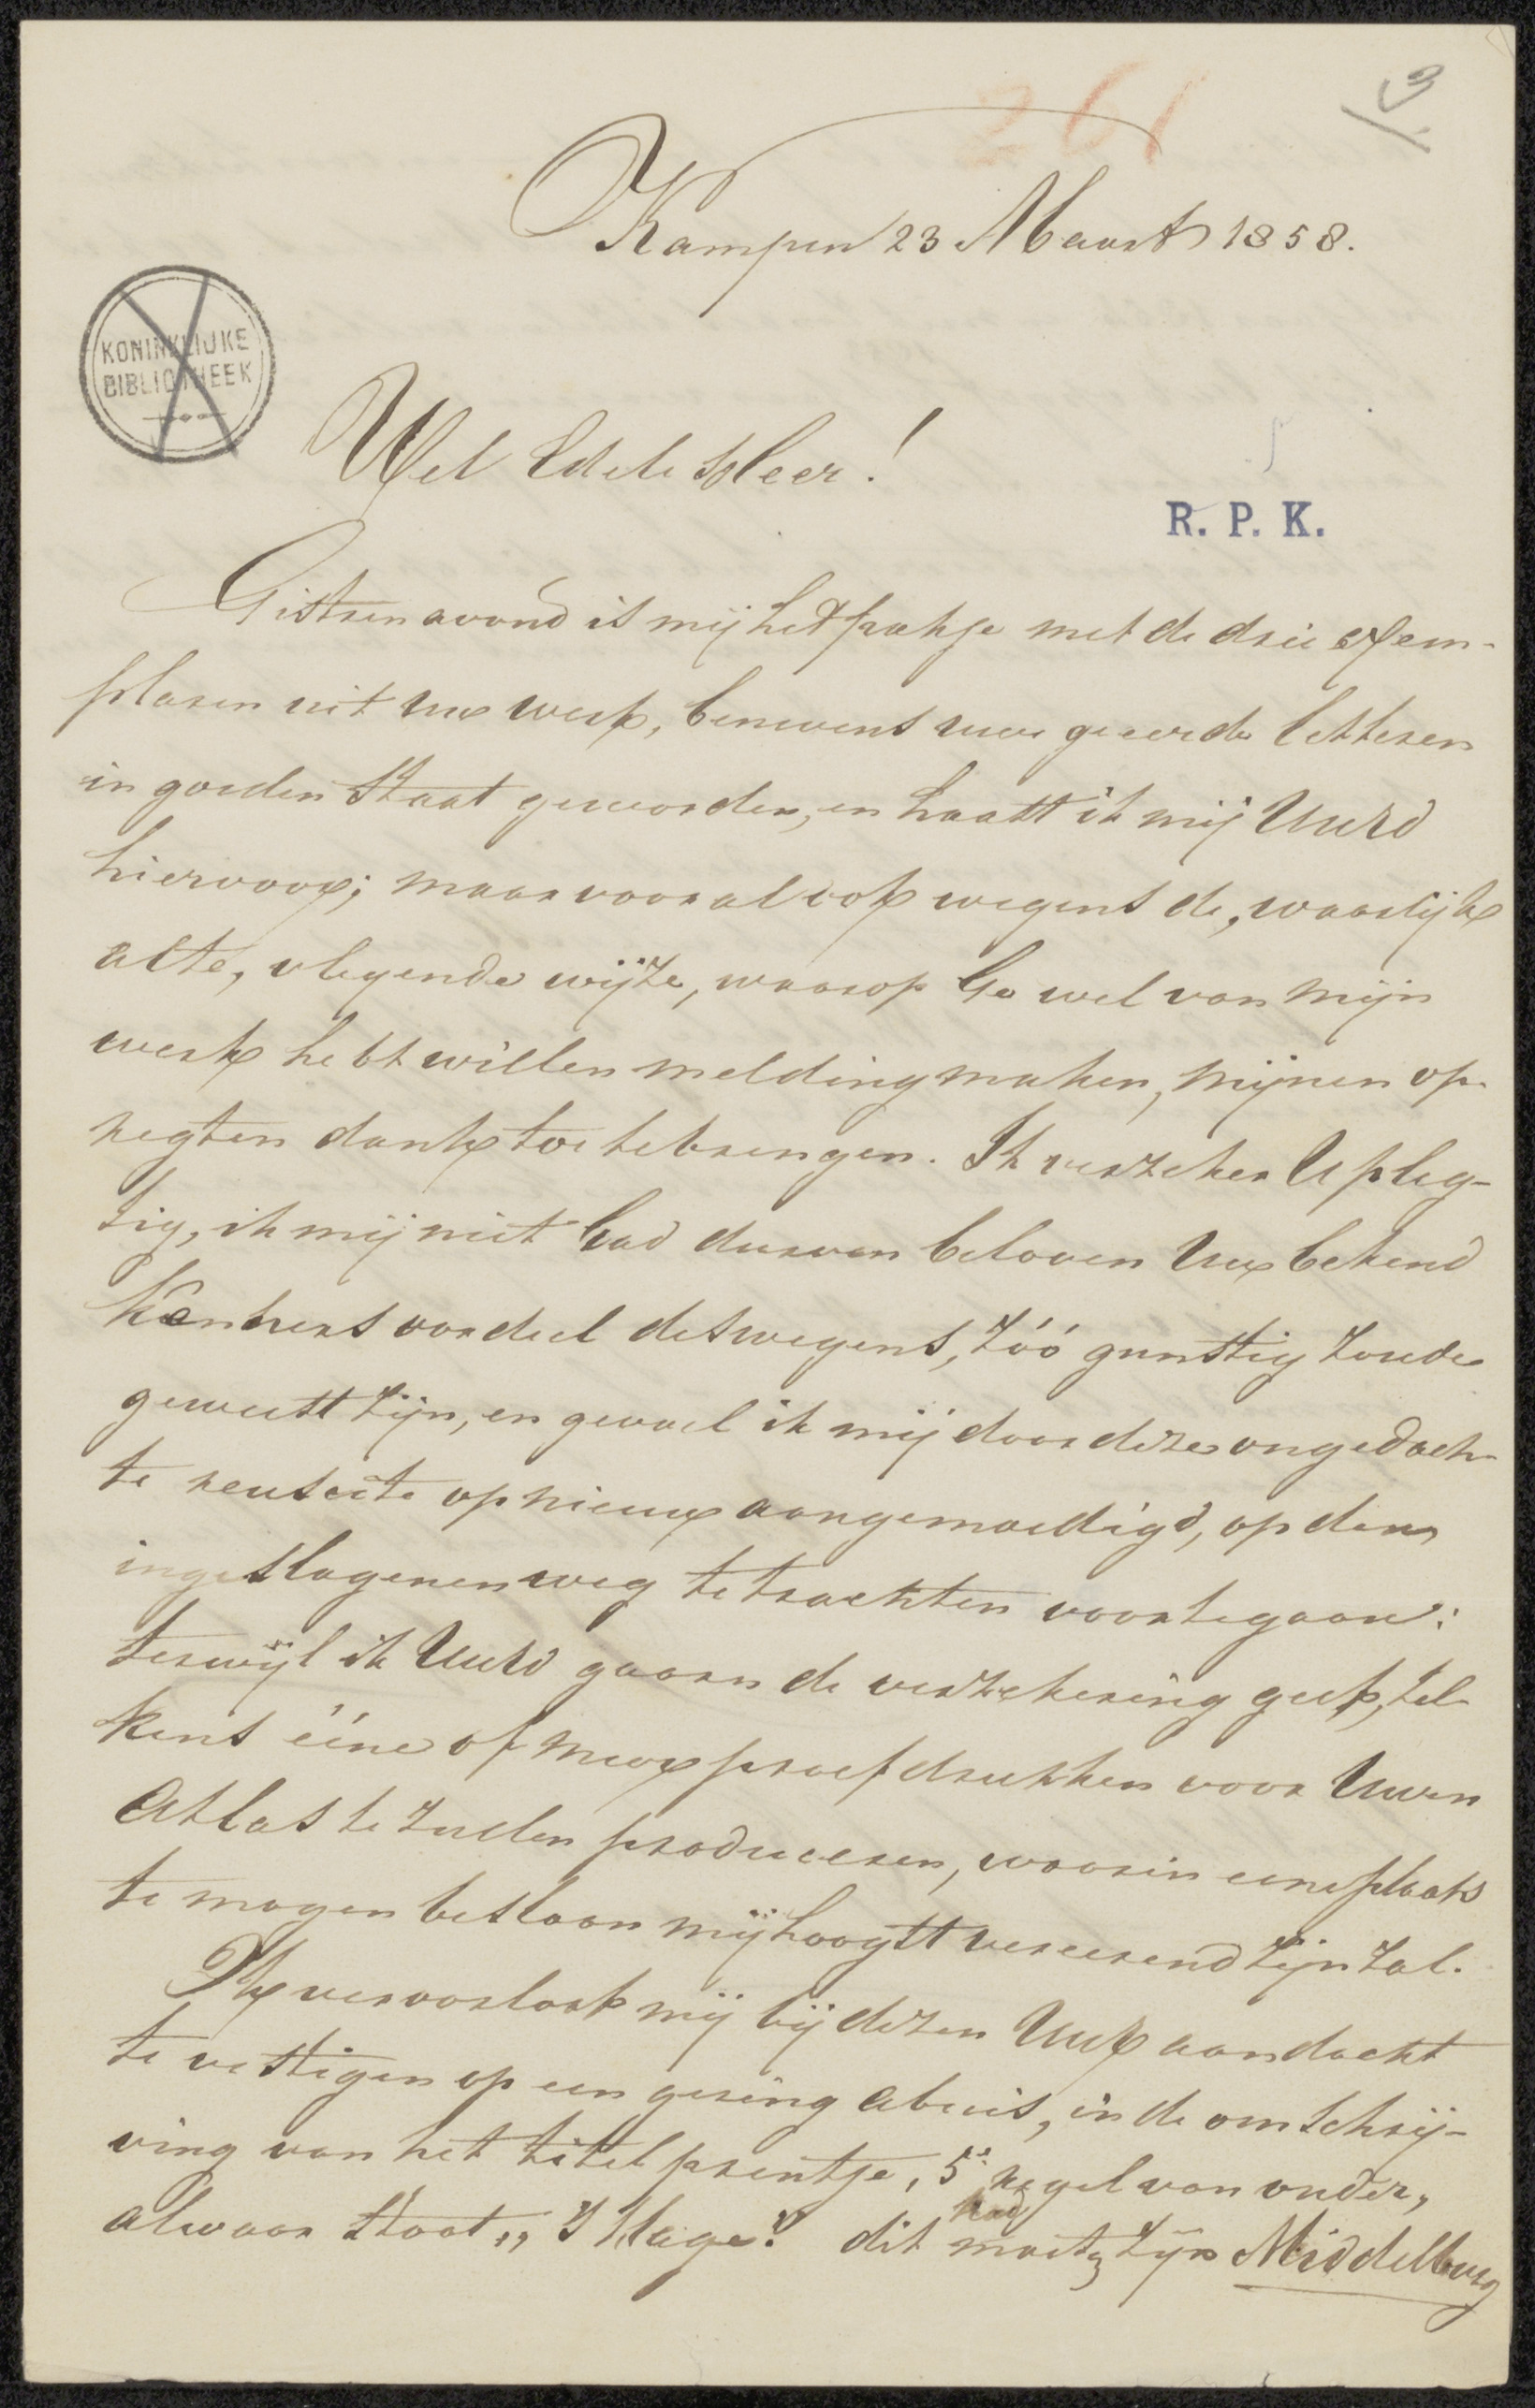 261
3
Kampen 23 Maart 1858.
KONINKLIJKE
BIBLIOTHEEK
Wel Edele Heer!
R. P. K.
Gisteren avond is mij het pakje met de drie exem-
plaren uit Uw werk, benevens uwe geeerde letteren
in goeden staat geworden, en haast ik mij UwEd
hiervoor; maar vooral ook wegens de, waarlijk
alte, vleijende wijze, waarop Ge wel van mijn
werk hebt willen melding maken, mijnen op-
regten dank toe te brengen. Ik verzeker U pleg-
tig, ik mij niet had durven beloven Uw bekend
kenners oordeel deswegens, zóó gunstig zoude
geweest zijn, en gevoel ik mij door deze ongedach-
te reuscite op nieuw aangemoedigd, op den
ingeslagenen weg te trachten voortegaan:
terwijl ik UwEd gaarn de verzekering geef, tel-
kens ééne of meer proefdrukken voor Uwen
Atlas te zullen produceren, waarin eene plaats
te mogen beslaan mij hoogst vereerend zijn zal.
Ik veroorloof mij bij dezen Uwe aandacht
te vestigen op een gering abuis, in de omschrij-
ving van het titelprentje, 5e regel van onder,
alwaar staat „'s Hage" dit moet zijn Middelburg
had